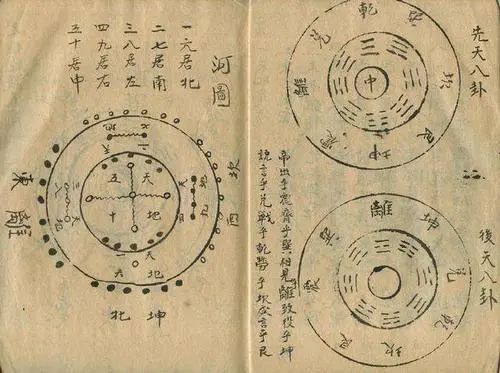 先天八卦
乾
兌
離
震
坤
艮
坎
中
後天八卦
離
坤
兌
乾
坎
艮
震
巽
帝出乎震齊乎巽相見乎離致役乎坤
說言乎兌戰乎乾勞乎坎成言乎艮
河圖
一六居北
二七居南
三八居左
四九居右
五十居中
天
五
地
十
坎
西
東
離
坤
北